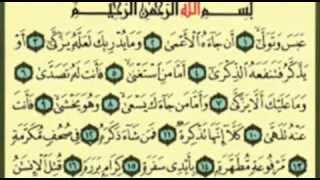 بِسْمِ اللَّهِ الرَّحْمَٰنِ الرَّحِيمِ
عَبَسَ وَتَوَلَّىٰ ١ أَن جَاءَهُ الْأَعْمَىٰ ٢ وَمَا يُدْرِيكَ لَعَلَّهُ يَزَّكَّىٰ ٣ أَوْ
يَذَّكَّرُ فَتَنفَعَهُ الذِّكْرَىٰ ٤ أَمَّا مَنِ اسْتَغْنَىٰ ٥ فَأَنتَ لَهُ تَصَدَّىٰ ٦
وَمَا عَلَيْكَ أَلَّا يَزَّكَّىٰ ٧ وَأَمَّا مَن جَاءَكَ يَسْعَىٰ ٨ وَهُوَ يَخْشَىٰ ٩ فَأَنتَ
عَنْهُ تَلَهَّىٰ ١٠ كَلَّا إِنَّهَا تَذْكِرَةٌ ١١ فَمَن شَاءَ ذَكَرَهُ ١٢ فِي صُحُفٍ مُّكَرَّمَةٍ
١٣ مَّرْفُوعَةٍ مُّطَهَّرَةٍ ١٤ بِأَيْدِي سَفَرَةٍ ١٥ كِرَامٍ بَرَرَةٍ ١٦ قُتِلَ الْإِنسَانُ